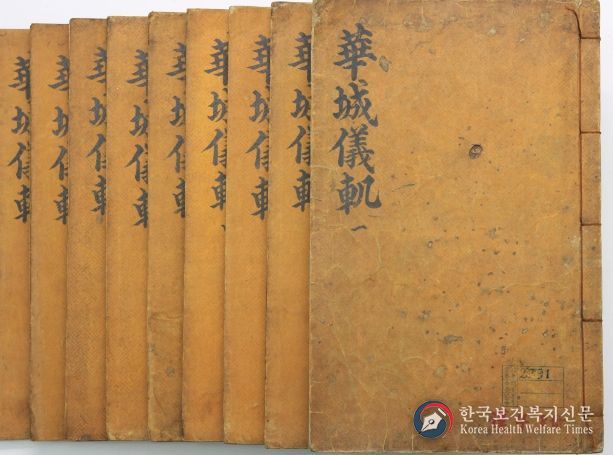 華城儀軌
華城儀軌
華城儀軌
華城儀軌
華城儀軌
華城儀軌
華城儀軌
華城儀軌
華城儀軌 一
한국보건복지신문
Korea Health Welfare Times